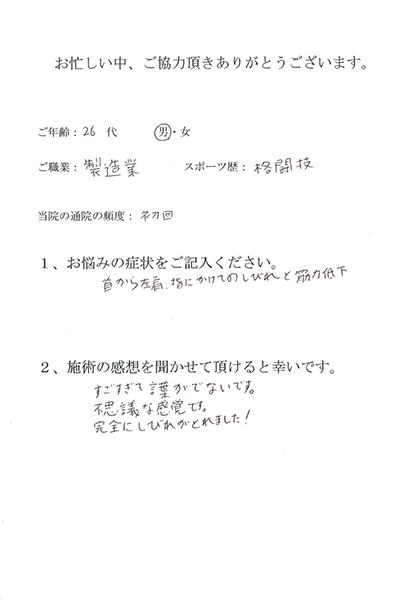 お忙しい中、ご協力頂きありがとうございます。
ご年齢：26 代 男・女
ご職業：製造業 スポーツ歴：格闘技
当院の通院の頻度：初回
１、お悩みの症状をご記入ください。
首から左肩、指にかけてのしびれと筋力低下
２、施術の感想を聞かせて頂けると幸いです。
すごすぎて言葉がでないです。
不思議な感覚です。
完全にしびれがとれました！